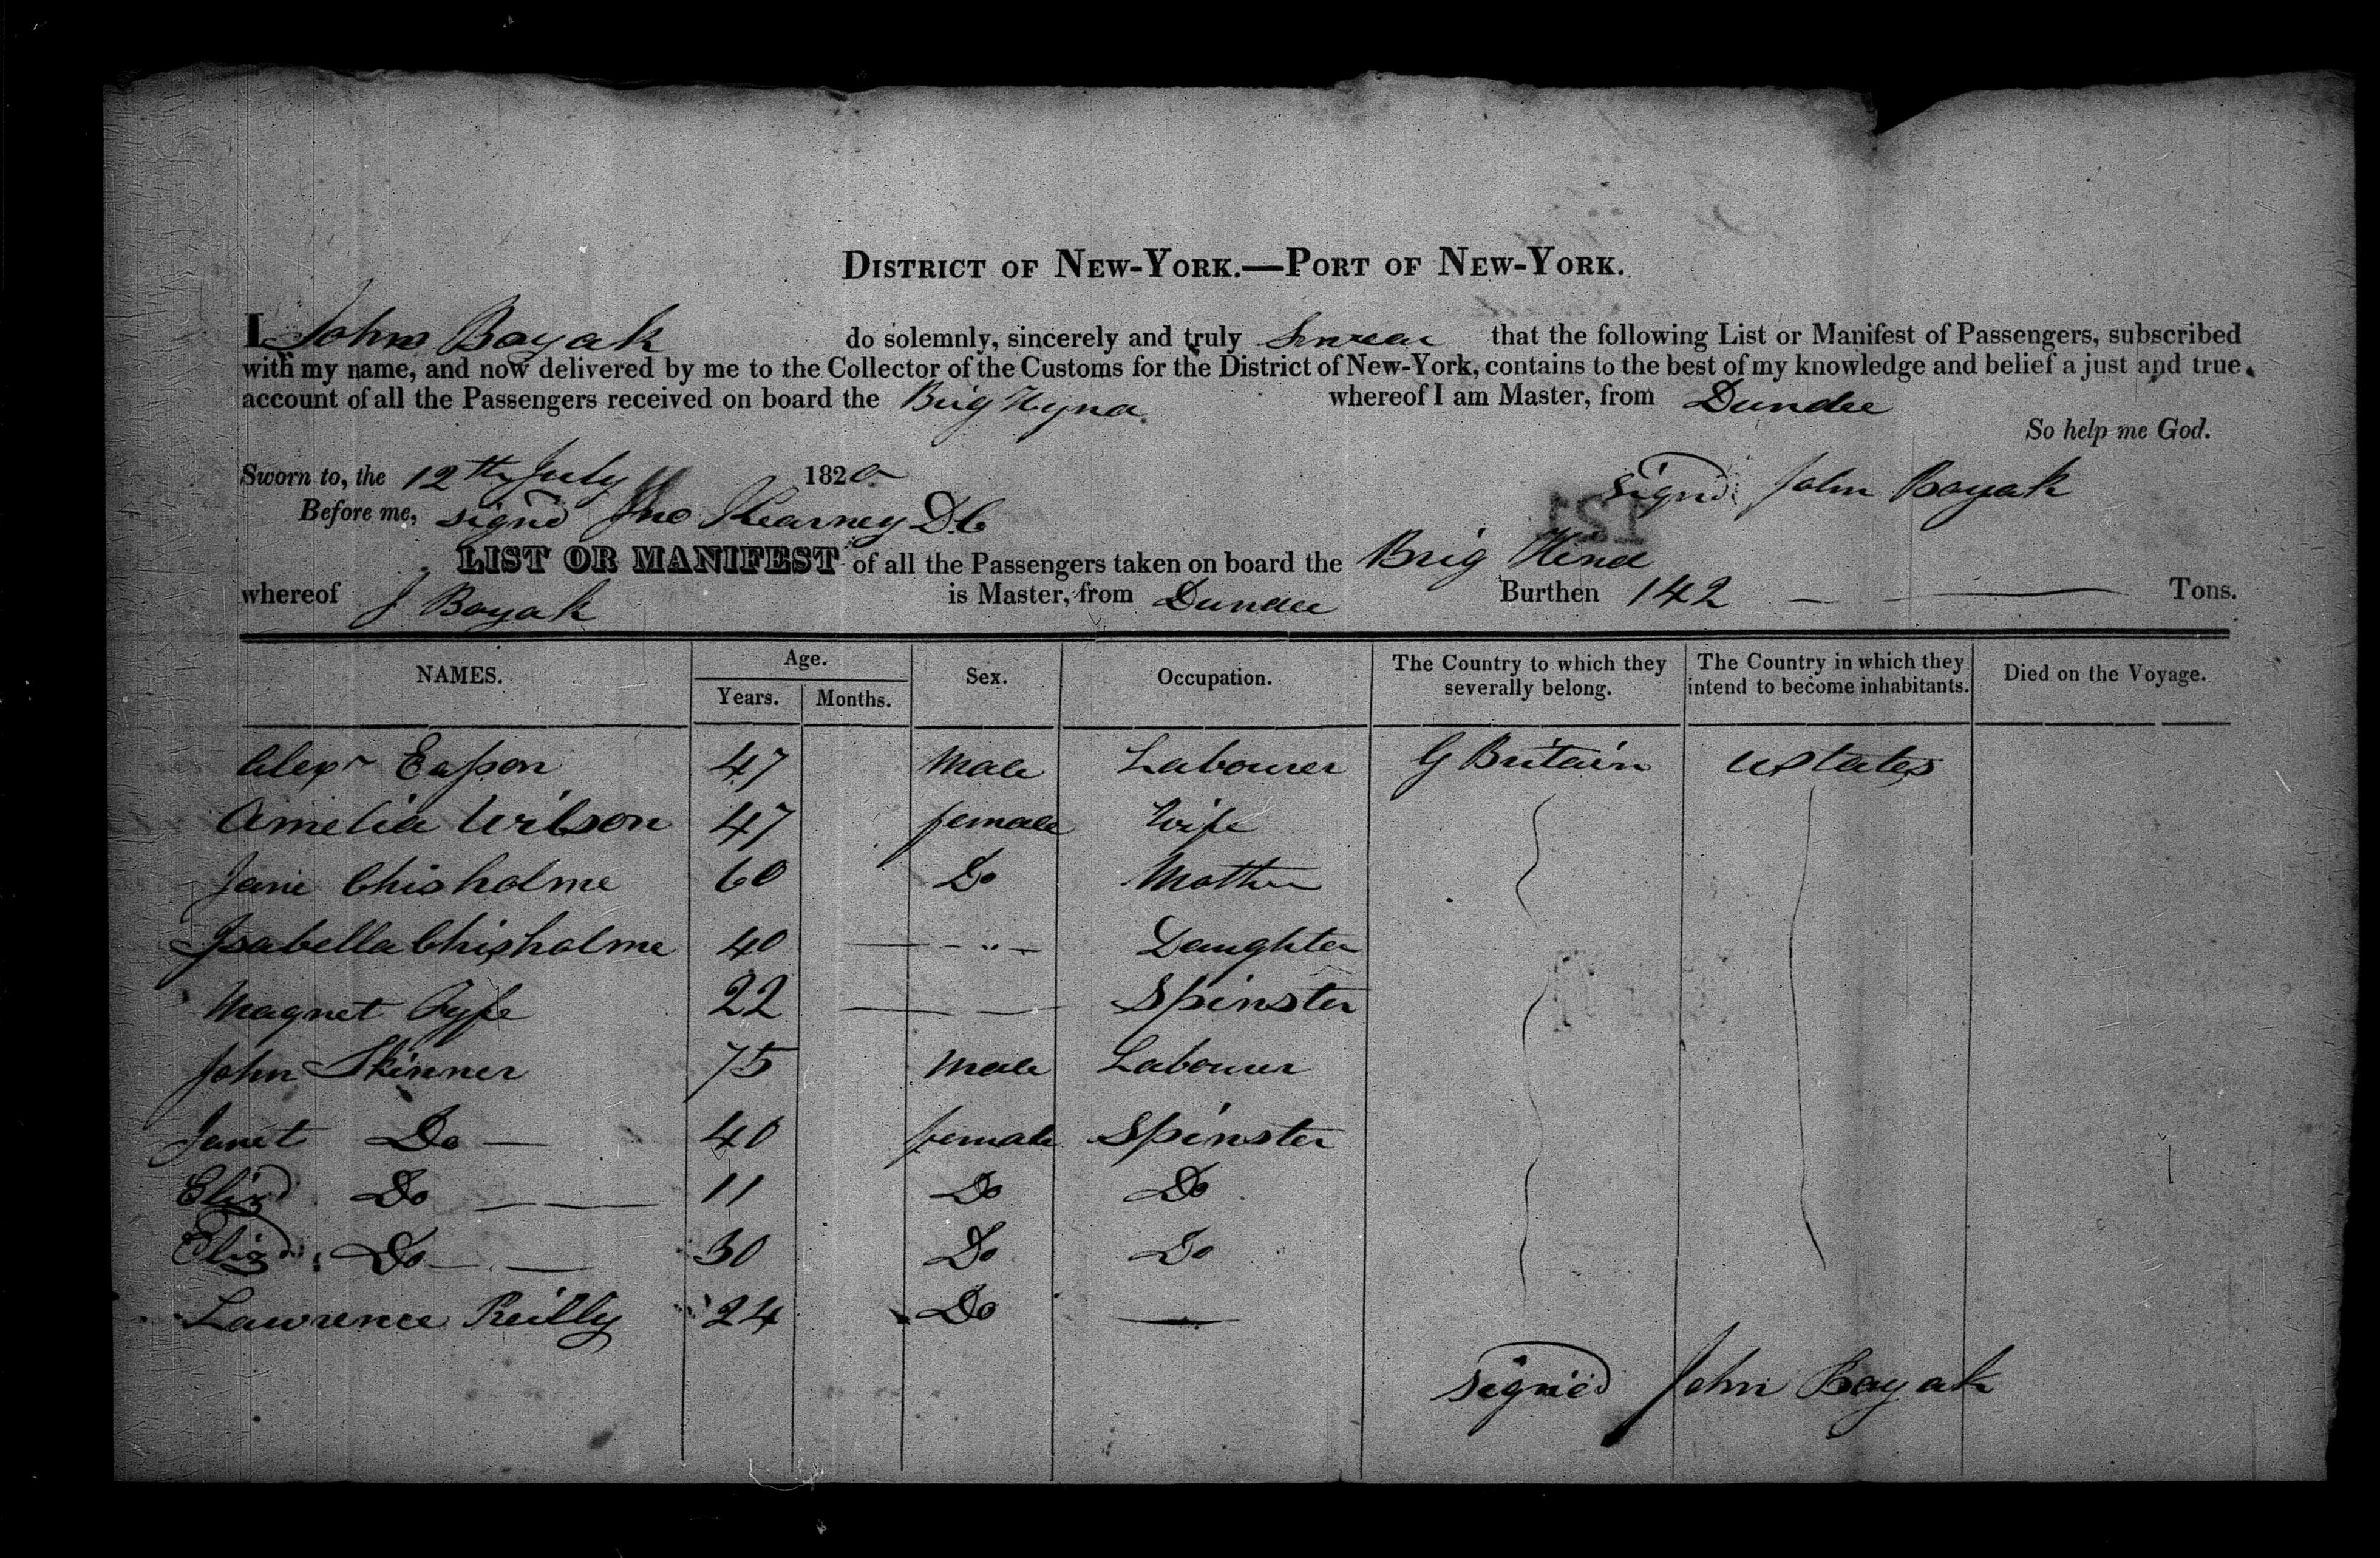 DISTRICT OF NEW-YORK.—PORT OF NEW-YORK.
I John Boyak do solemnly, sincerely and truly Swear that the following List or Manifest of Passengers, subscribed
with my name, and now delivered by me to the Collector of the Customs for the District of New-York, contains to the best of my knowledge and belief a just and true
account of all the Passengers received on board the Brig whereof I am Master, from Dundee
So help me God.
Sworn to, the 12th July 1820 signd John Boyak
Before me, signd Jno Kearney D.C
121
LIST OR MANIFEST of all the Passengers taken on board the Brig Hind
whereof J Boyak is Master, from Dundee Burthen 142 — — Tons.
NAMES. Age. Years. Months. Sex. Occupation. The Country to which they severally belong. The Country in which they intend to become inhabitants. Died on the Voyage.
Alexr Eason 47 Male Labourer G Britain U States
Amelia Wilson 47 female Wife
Jane Chisholme 60 Do Mother
Isabella Chisholme 40 — - „ - Daughter
Magnet Fyfe 22 — — Spinster
John Skinner 75 Male Labourer
Janet Do — 40 female Spinster
Eliz Do — — 11 Do Do
Eliz Do — — 30 Do Do
Lawrence Reilly 24 Do —
signed John Boyak